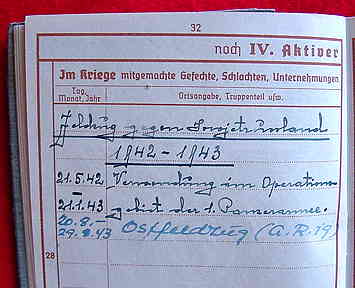 32
noch IV. Aktiver
Im Kriege mitgemachte Gefechte, Schlachten, Unternehmungen
Tag, Monat, Jahr
Ortsangabe, Truppenteil usw.
Feldzug gegen Sowjetrussland
1942 – 1943
21.5.42. Verwendung im Operations-
–
21.1.43 gebiet der 1. Panzerarmee.
20.8.-
29.9.43 Ostfeldzug (A.R.19)
28